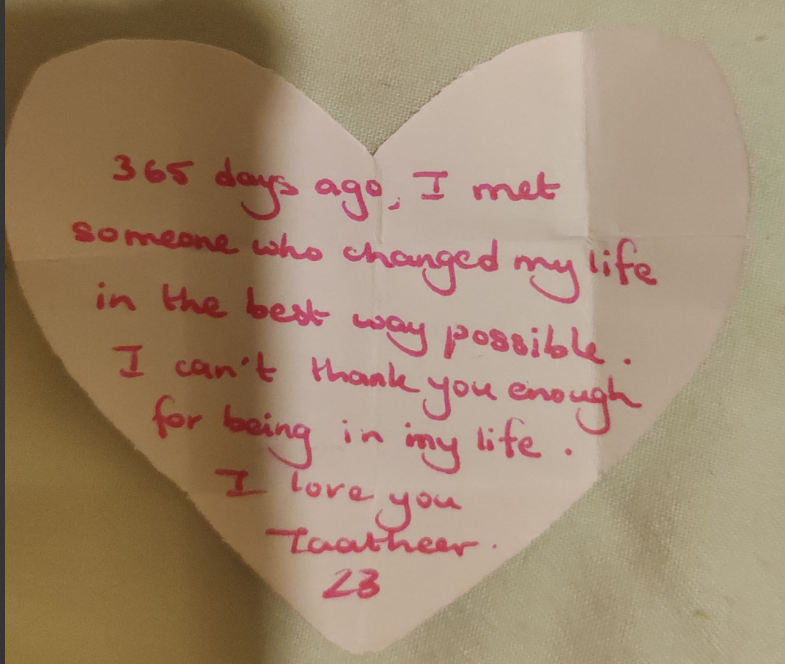 365 days ago, I met
someone who changed my life
in the best way possible.
I can't thank you enough
for being in my life.
I love you
Taatheer.
23